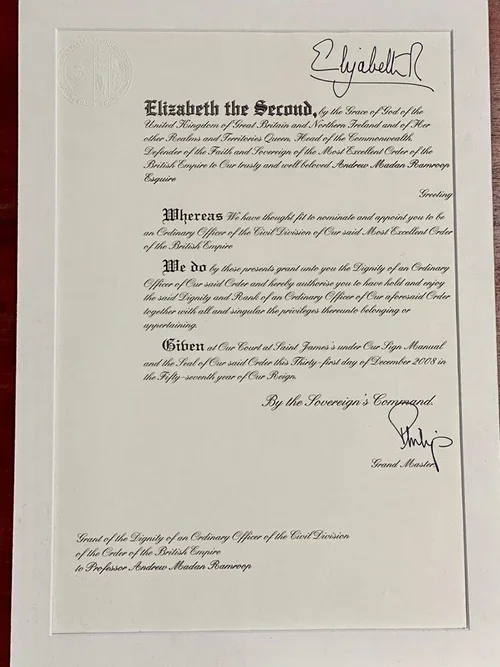 Elizabeth R
Elizabeth the Second, by the Grace of God of the
United Kingdom of Great Britain and Northern Ireland and of Her
other Realms and Territories Queen, Head of the Commonwealth,
Defender of the Faith and Sovereign of the Most Excellent Order of the
British Empire to Our trusty and well beloved Andrew Madan Ramroop
Esquire
Greeting
Whereas We have thought fit to nominate and appoint you to be
an Ordinary Officer of the Civil Division of Our said Most Excellent Order
of the British Empire
We do by these presents grant unto you the Dignity of an Ordinary
Officer of Our said Order and hereby authorise you to have hold and enjoy
the said Dignity and Rank of an Ordinary Officer of Our aforesaid Order
together with all and singular the privileges thereunto belonging or
appertaining.
Given at Our Court at Saint James's under Our Sign Manual
and the Seal of Our said Order this Thirty-first day of December 2008 in
the Fifty-seventh year of Our Reign.
By the Sovereign's Command.
Philip
Grand Master
Grant of the Dignity of an Ordinary Officer of the Civil Division
of the Order of the British Empire
to Professor Andrew Madan Ramroop